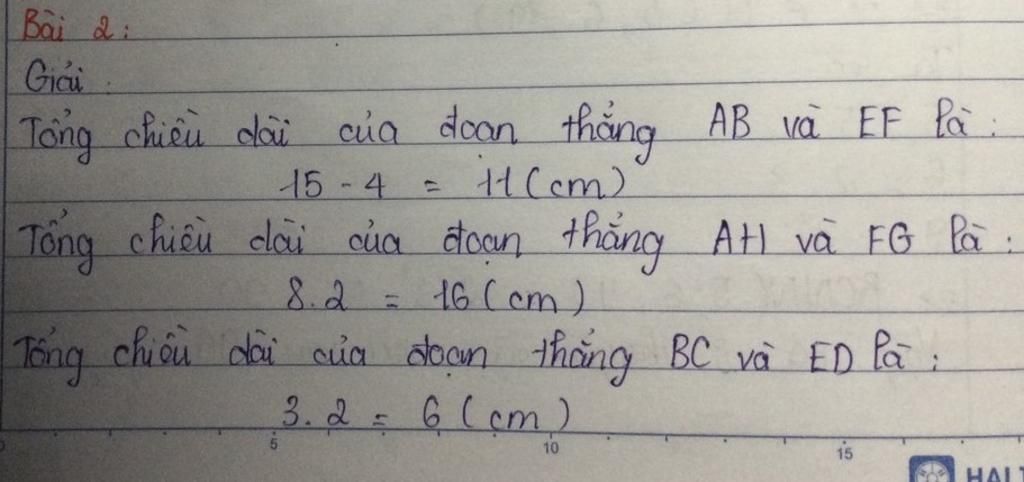 Bài 2:
Giải:
Tổng chiều dài của đoạn thẳng AB và EF là:
15 - 4 = 11 (cm)
Tổng chiều dài của đoạn thẳng AH và FG là:
8.2 = 16 (cm)
Tổng chiều dài của đoạn thẳng BC và ED là:
3.2 = 6 (cm)
5 10 15